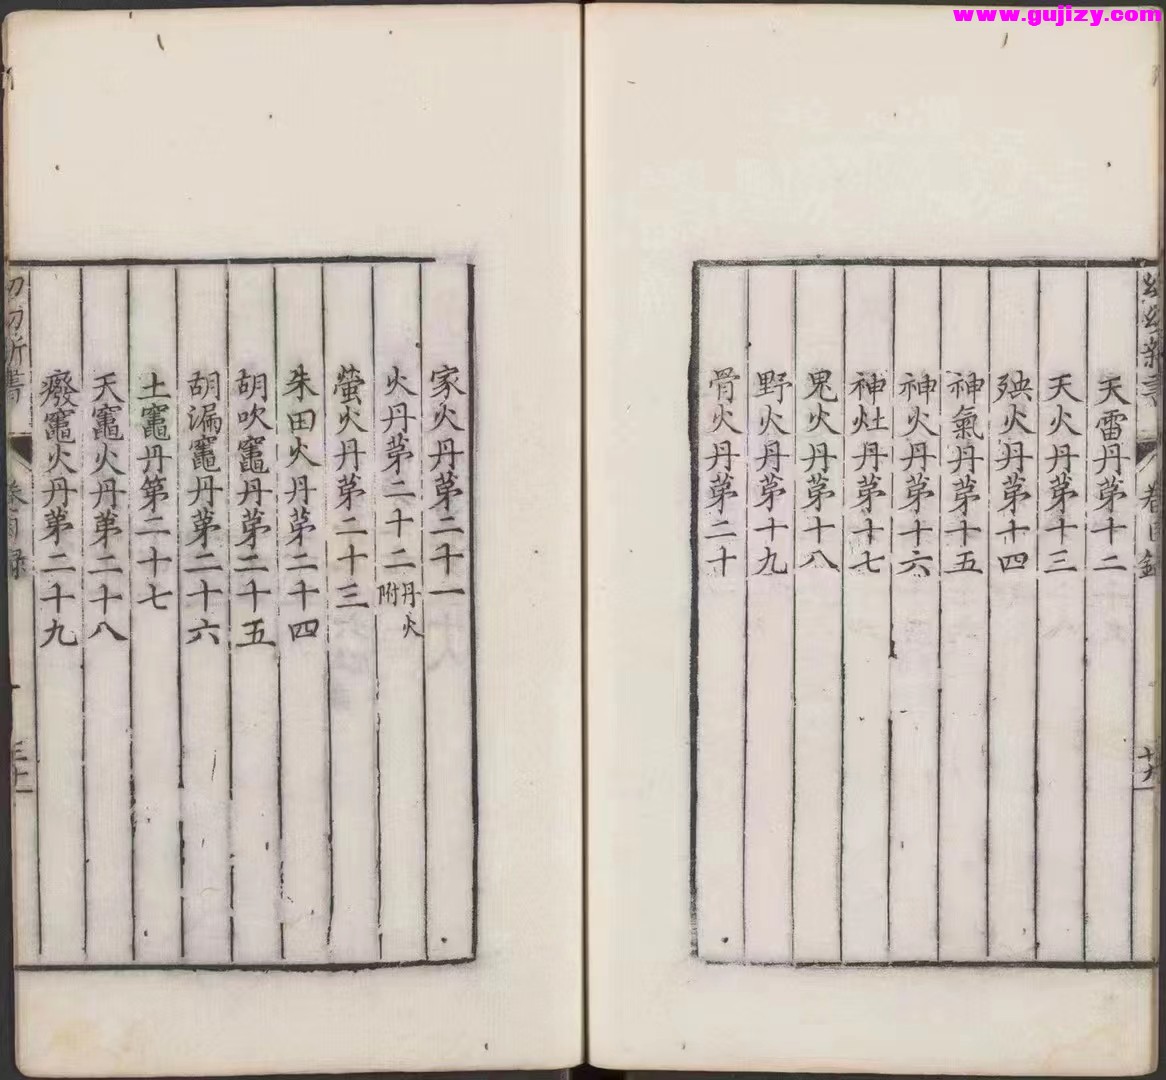 www.gujizy.com
天雷丹第十二
天火丹第十三
殃火丹第十四
神氣丹第十五
神火丹第十六
神灶丹第十七
鬼火丹第十八
野火丹第十九
骨火丹第二十
家火丹第二十一
火丹第二十二丹火附
螢火丹第二十三
朱田火丹第二十四
胡吹竈丹第二十五
胡漏竈丹第二十六
土竈丹第二十七
天竈火丹第二十八
癈竈火丹第二十九